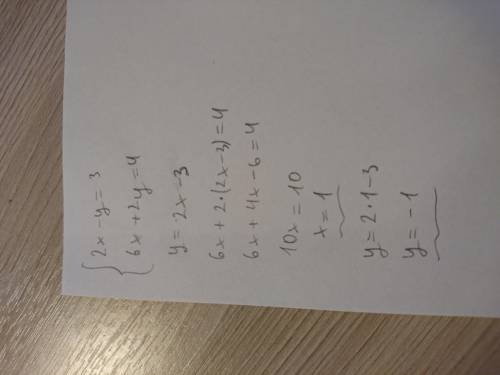 { 2x - y = 3
6x + 2y = 4
y = 2x - 3
6x + 2·(2x - 3) = 4
6x + 4x - 6 = 4
10x = 10
x = 1
y = 2·1 - 3
y = -1